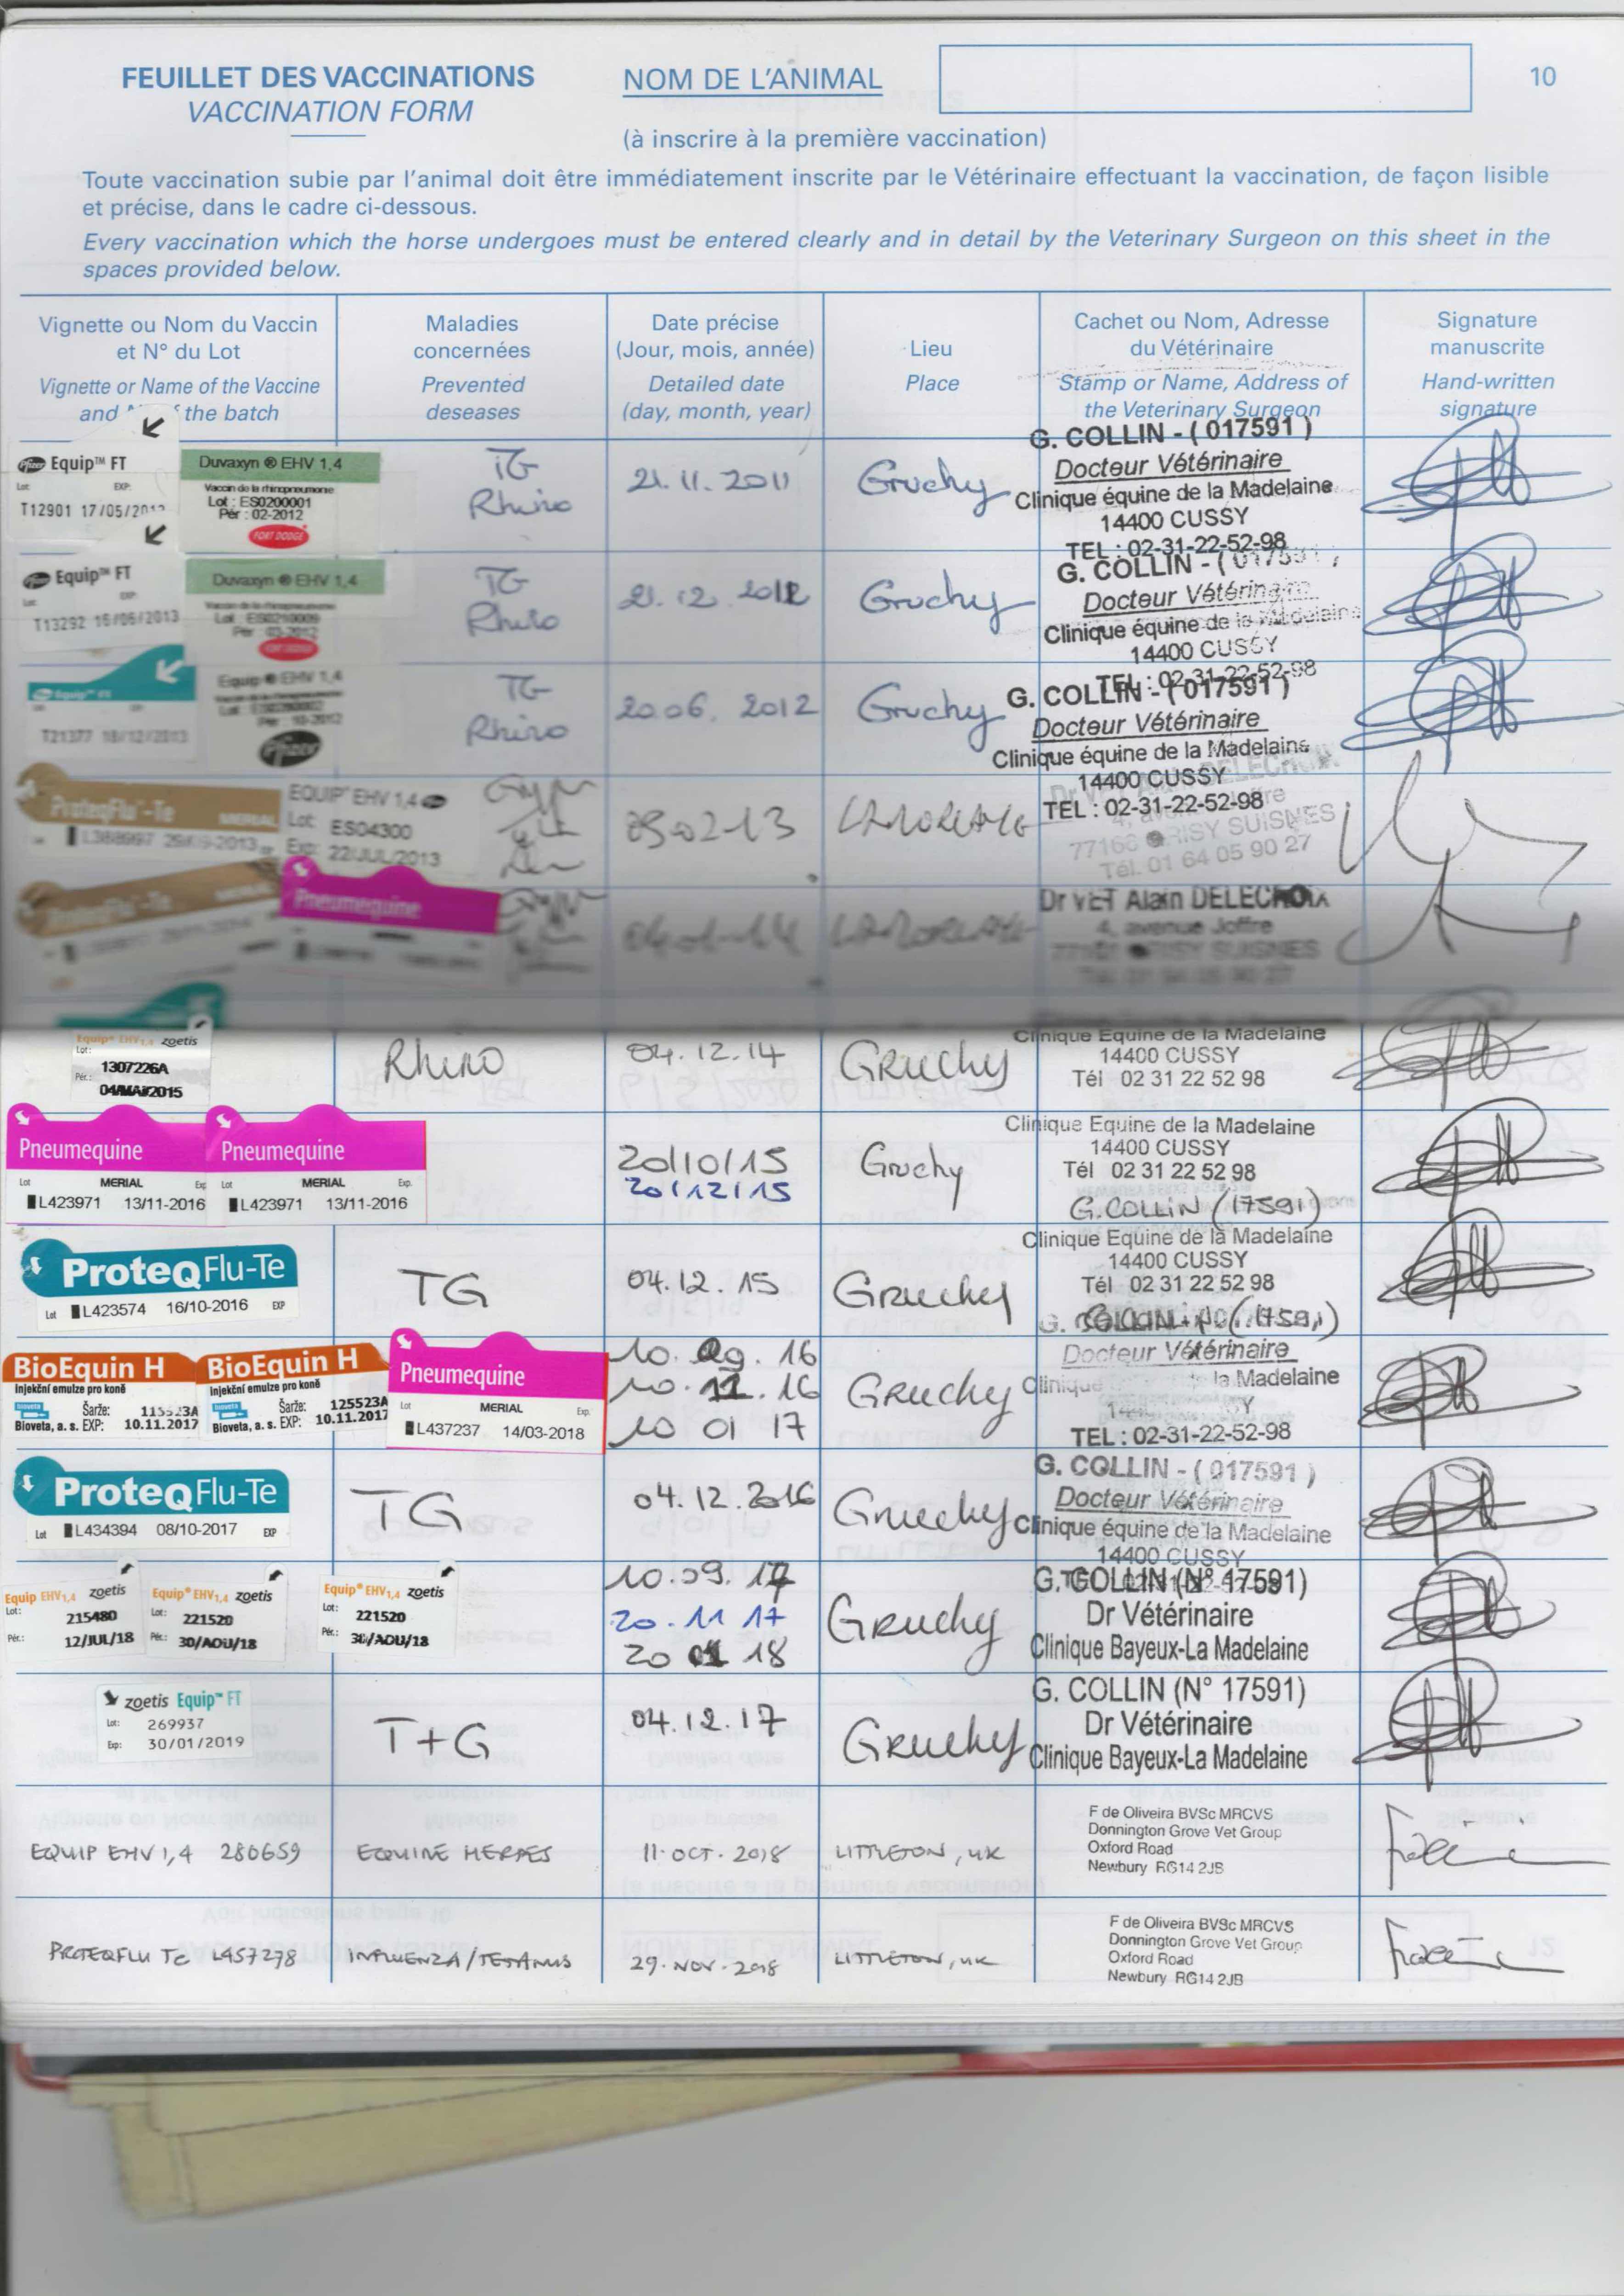 FEUILLET DES VACCINATIONS
VACCINATION FORM
NOM DE L'ANIMAL
10
(à inscrire à la première vaccination)
Toute vaccination subie par l'animal doit être immédiatement inscrite par le Vétérinaire effectuant la vaccination, de façon lisible
et précise, dans le cadre ci-dessous.
Every vaccination which the horse undergoes must be entered clearly and in detail by the Veterinary Surgeon on this sheet in the
spaces provided below.
Vignette ou Nom du Vaccin
et N° du Lot
Vignette or Name of the Vaccine
and the batch
Maladies
concernées
Prevented
deseases
Date précise
(Jour, mois, année)
Detailed date
(day, month, year)
Lieu
Place
Cachet ou Nom, Adresse
du Vétérinaire
Stamp or Name, Address of
the Veterinary Surgeon
Signature
manuscrite
Hand-written
signature
Pfizer Equip™ FT
Lot: EXP:
T12901 17/05/201
Duvaxyn ® EHV 1,4
Vaccin de la rhinopneumonie
Lot : ES0200001
Pér : 02-2012
FORT DODGE
TG
Rhino
21.11.2011
Gruchy
G. COLLIN - ( 017591 )
Docteur Vétérinaire
Clinique équine de la Madelaine
14400 CUSSY
TEL : 02-31-22-52-98
Equip™ FT
T13292 16/06/2013
Duvaxyn ® EHV 1,4
FORT DODGE
TG
Rhino
21.12.2012
Gruchy
G. COLLIN - ( 017591 )
Docteur Vétérinaire
Clinique équine de la Madelaine
14400 CUSSY
TEL : 02-31-22-52-98
T21377 18/12/2013
Equip ® EHV 1,4
Pfizer
TG
Rhino
20.06.2012
Gruchy
G. COLLIN - ( 017591 )
Docteur Vétérinaire
Clinique équine de la Madelaine
14400 CUSSY
TEL : 02-31-22-52-98
ProteqFlu™-Te
MERIAL
EQUIP EHV 1,4
Lot: ES04300
Exp: 22/JUL/2013
Dr VET Alain DELECHOIX
4, avenue Joffre
SUISNES
Tél. 01 64 05 90 27
MERIAL
Pneumequine
Dr VET Alain DELECHOIX
4, avenue Joffre
SUISNES
Equip® EHV1,4 zoetis
Lot:
1307226A
Pér.:
04/MAI/2015
Rhino
04.12.14
Gruchy
Clinique Equine de la Madelaine
14400 CUSSY
Tél 02 31 22 52 98
Pneumequine
Lot MERIAL Exp
L423971 13/11-2016
Pneumequine
Lot MERIAL Exp.
L423971 13/11-2016
20/10/15
20/12/15
Gruchy
Clinique Equine de la Madelaine
14400 CUSSY
Tél 02 31 22 52 98
G.COLLIN (17591)
ProteqFlu-Te
Lot L423574 16/10-2016 EXP
TG
04.12.15
Gruchy
Clinique Equine de la Madelaine
14400 CUSSY
Tél 02 31 22 52 98
BioEquin H
Injekční emulze pro koně
Šarže:
Bioveta, a. s. EXP: 10.11.2017
BioEquin H
Injekční emulze pro koně
Šarže: 125523A
Bioveta, a. s. EXP: 10.11.2017
Pneumequine
Lot MERIAL Exp.
L437237 14/03-2018
10.09.16
10.11.16
10 01 17
Gruchy
Docteur Vétérinaire
Clinique la Madelaine
TEL : 02-31-22-52-98
ProteqFlu-Te
Lot L434394 08/10-2017 EXP
TG
04.12.2016
Gruchy
G. COLLIN - ( 017591 )
Docteur Vétérinaire
Clinique équine de la Madelaine
14400 CUSSY
Equip EHV1,4 zoetis
Lot: 215480
Pér.: 12/JUL/18
Equip® EHV1,4 zoetis
Lot: 221520
Pér.: 30/AOU/18
Equip® EHV1,4 zoetis
Lot: 221520
Pér.: 30/AOU/18
10.09.17
20.11 17
20 01 18
Gruchy
G. COLLIN (N° 17591)
Dr Vétérinaire
Clinique Bayeux-La Madelaine
zoetis Equip™ FT
Lot: 269937
Exp: 30/01/2019
T+G
04.12.17
Gruchy
G. COLLIN (N° 17591)
Dr Vétérinaire
Clinique Bayeux-La Madelaine
EQUIP EHV 1,4 280659
EQUINE HERPES
11.OCT.2018
LITTLETON, UK
F de Oliveira BVSc MRCVS
Donnington Grove Vet Group
Oxford Road
Newbury RG14 2JB
PROTEQFLU TE L457278
INFLUENZA/TETANUS
29.NOV.2018
LITTLETON, UK
F de Oliveira BVSc MRCVS
Donnington Grove Vet Group
Oxford Road
Newbury RG14 2JB